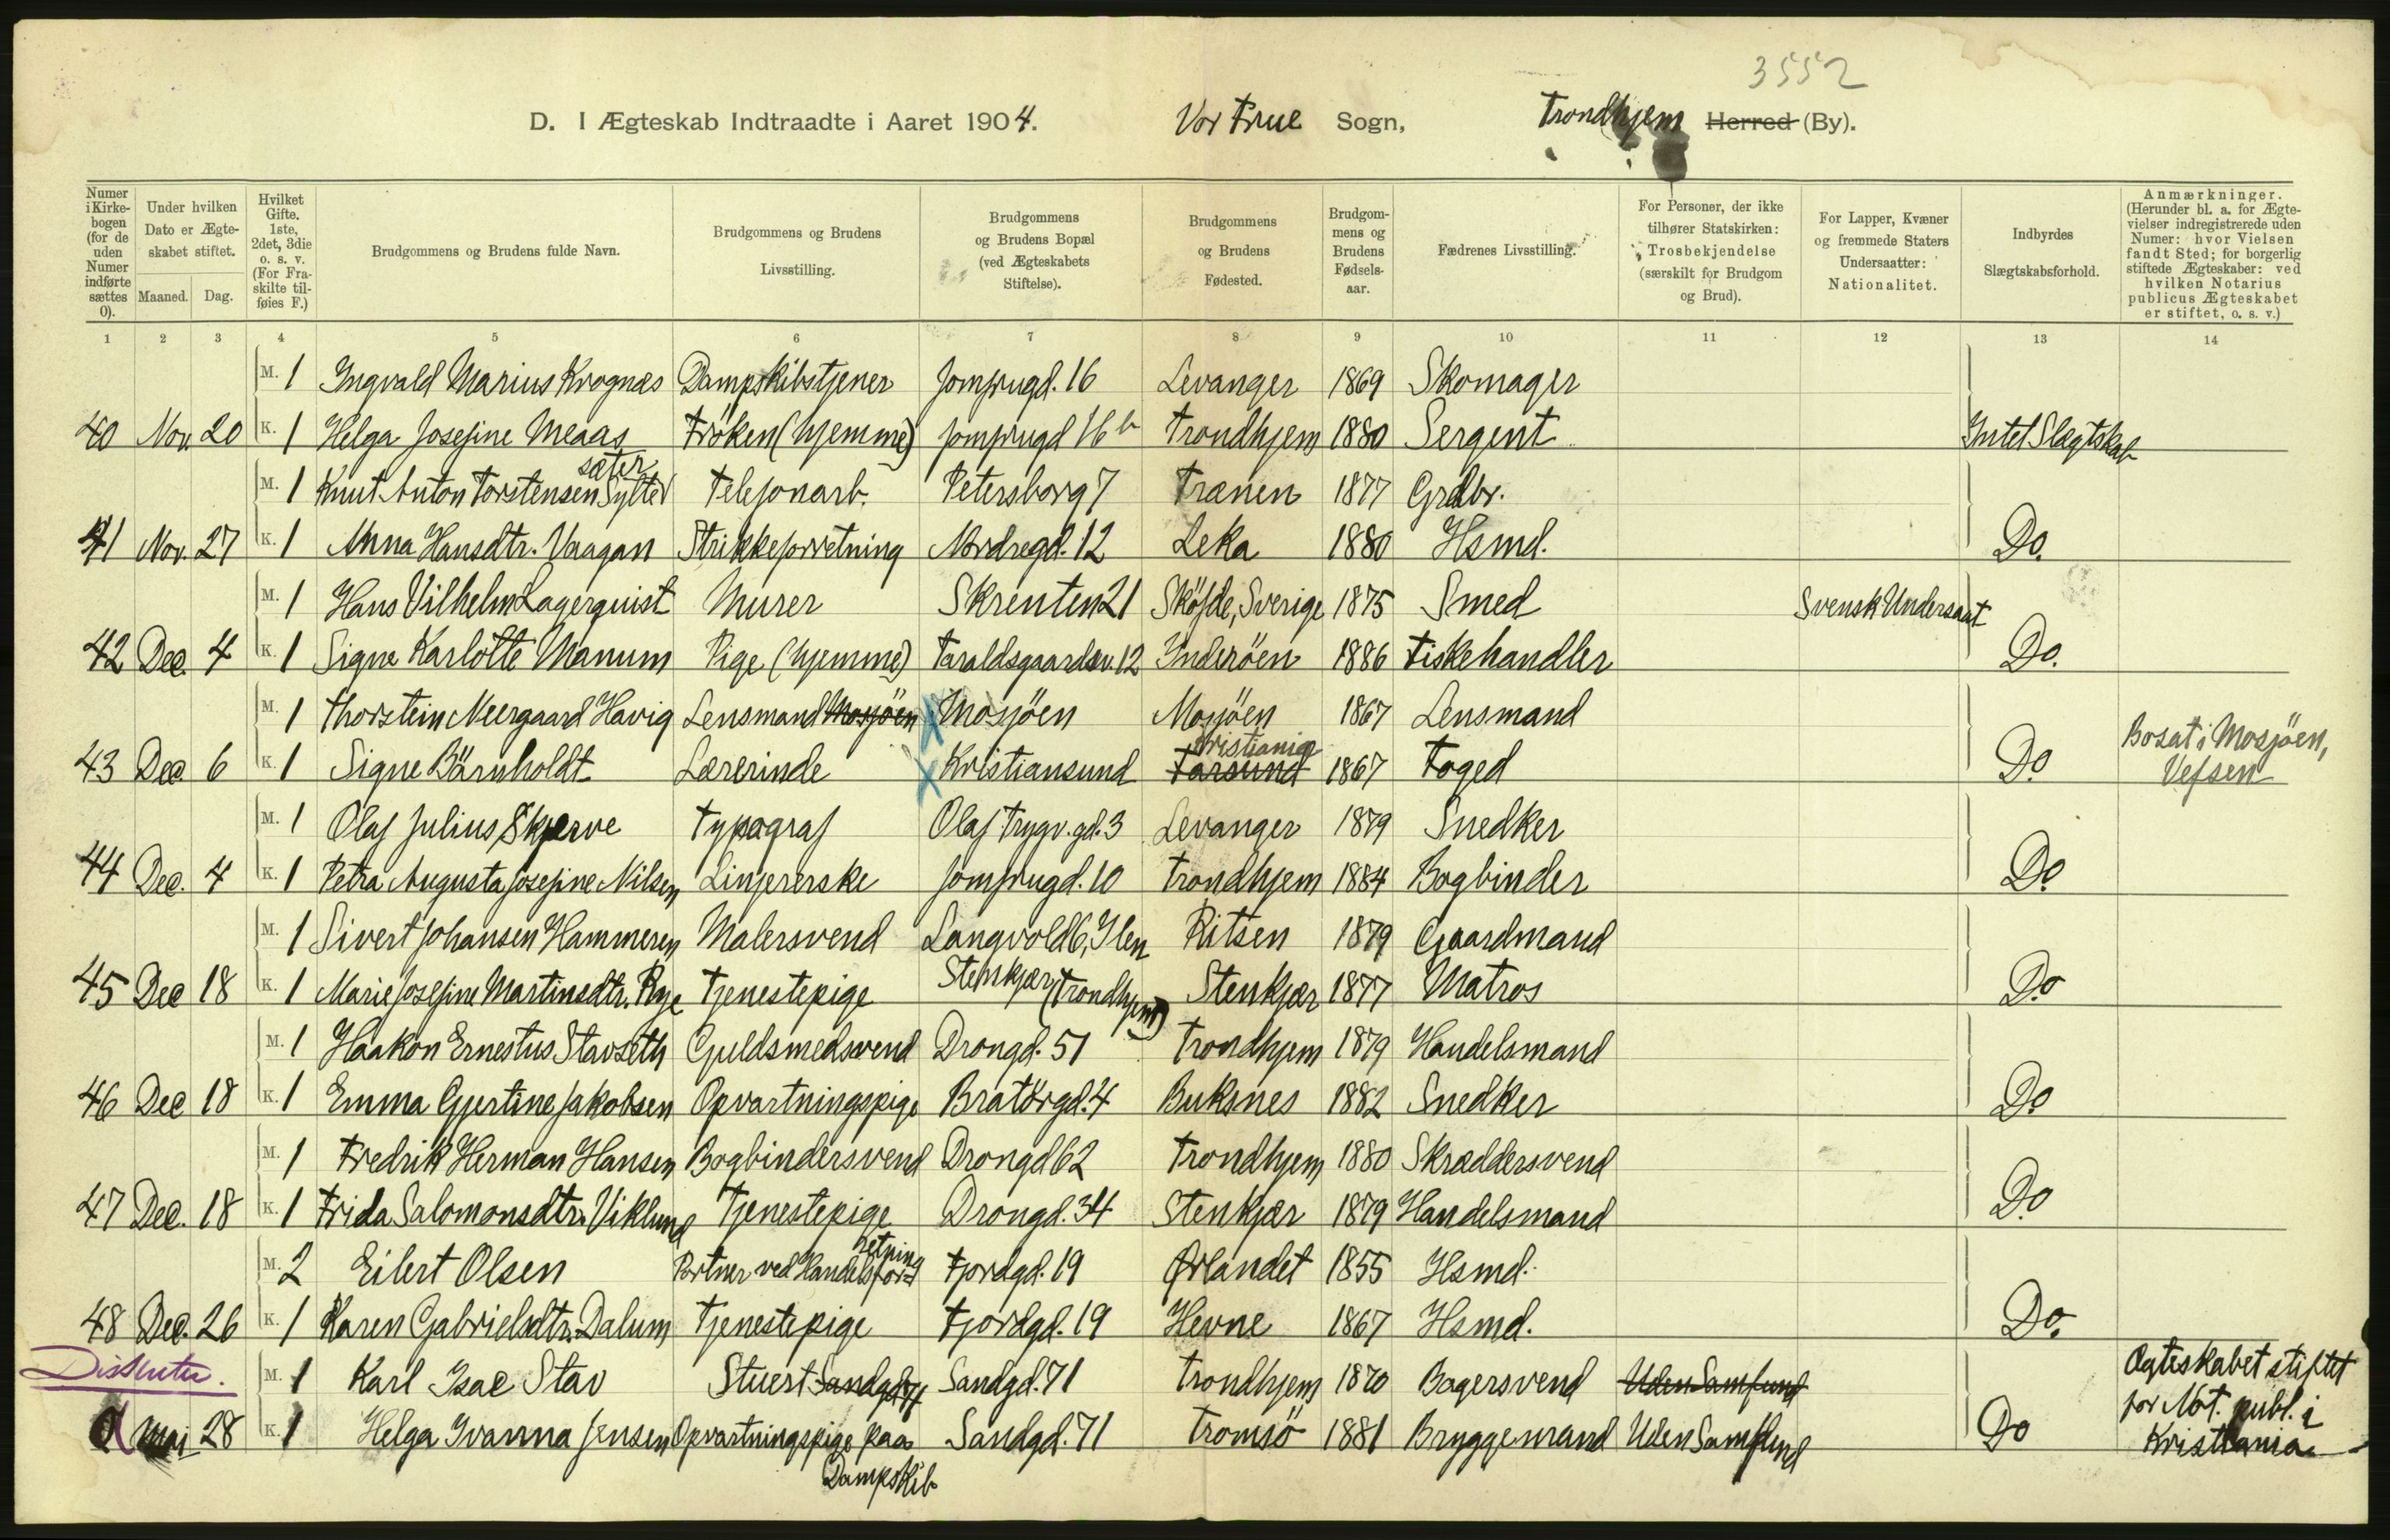 3552
D. I Ægteskab Indtraadte i Aaret 1904. Vor Frue Sogn, Trondhjem Herred (By).
Numer i Kirkebogen (for de uden Numer indførte sættes 0). Under hvilken Dato er Ægteskabet stiftet. Maaned. Dag. Hvilket Gifte. 1ste, 2det, 3die o. s. v. (For Fraskilte tilføies F.) Brudgommens og Brudens fulde Navn. Brudgommens og Brudens Livsstilling. Brudgommens og Brudens Bopæl (ved Ægteskabets Stiftelse). Brudgommens og Brudens Fødested. Brudgommens og Brudens Fødselsaar. Fædrenes Livsstilling. For Personer, der ikke tilhører Statskirken: Trosbekjendelse (særskilt for Brudgom og Brud). For Lapper, Kvæner og fremmede Staters Undersaatter: Nationalitet. Indbyrdes Slægtskabsforhold. Anmærkninger. (Herunder bl. a. for Ægtevielser indregistrerede uden Numer: hvor Vielsen fandt Sted; for borgerlig stiftede Ægteskaber: ved hvilken Notarius publicus Ægteskabet er stiftet, o. s. v.)
1 2 3 4 5 6 7 8 9 10 11 12 13 14
M. 1 Ingvald Marius Krognæs Dampskibstjener Jomfrugd. 16 Levanger 1869 Skomager
40 Nov. 20 K. 1 Helga Josefine Meaas Frøken (hjemme) Jomfrugd 16 b Trondhjem 1880 Sergent Intet Slægtskab
M. 1 Knut Anton Torstensen Sylte sæter Telefonarb. Petersborg 7 Trænen 1877 Grdbr.
41 Nov. 27 K. 1 Anna Hansdtr. Vaagan Strikkeforretning Nordregd. 12 Leka 1880 Hsmd. Do.
M. 1 Hans Vilhelm Lagerquist Murer Skrenten 21 Sköfde, Sverige 1875 Smed Svensk Undersaat
42 Dec. 4 K. 1 Signe Karlotte Manum Pige (hjemme) Taraldsgaardsv. 12 Inderöen 1886 Fiskehandler Do.
M. 1 Thorstein Neergaard Havig Lensmand Mosjöen Mosjöen Mosjöen 1867 Lensmand
43 Dec 6 K. 1 Signe Bärnholdt Lærerinde Kristiansund Farsund Kristiania 1867 Foged Do Bosat i Mosjöen, Vefsen
M. 1 Olaf Julius Skjerve Typograf Olaf Trygv. gd. 3 Levanger 1879 Snedker
44 Dec. 4 K. 1 Petra Augusta Josefine Nilsen Linjererske Jomfrugd. 10 Trondhjem 1884 Bogbinder Do
M. 1 Sivert Johansen Hammeren Malersvend Langvold 6, Ilen Ritsen 1879 Gaardmand
45 Dec 18 K. 1 Marie Josefine Martinsdtr. Rye Tjenestepige Stenkjær (Trondhjem) Stenkjær 1877 Matros Do
M. 1 Haakon Ernestus Stavseth Guldsmedsvend Drongd. 51 Trondhjem 1879 Handelsmand
46 Dec 18 K. 1 Emma Gjertine Jakobsen Opvartningspige Bratörgd. 4 Buksnes 1882 Snedker Do
M. 1 Fredrik Herman Hansen Bogbindersvend Drongd 62 Trondhjem 1880 Skræddersvend
47 Dec. 18 K. 1 Frida Salomonsdtr. Viklund Tjenestepige Drongd. 34 Stenkjær 1879 Handelsmand Do
M. 2 Eilert Olsen Portner ved Handelsforretning Fjordgd. 19 Ørlandet 1855 Hsmd.
48 Dec. 26 K. 1 Karen Gabrielsdtr. Dalum Tjenestepige Fjordgd. 19 Hevne 1867 Hsmd. Do.
Dissenter. M. 1 Karl Isac Stav Stuert Sandgd 71 Sandgd. 71 Trondhjem 1870 Bagersvend Uden Samfund
0 Mai 28 K. 1 Helga Ivanna Jensen Opvartningspige paa Dampskib Sandgd. 71 Tromsö 1881 Bryggemand Uden Samfund Do Ægteskabet stiftet for Not. publ. i Kristiania